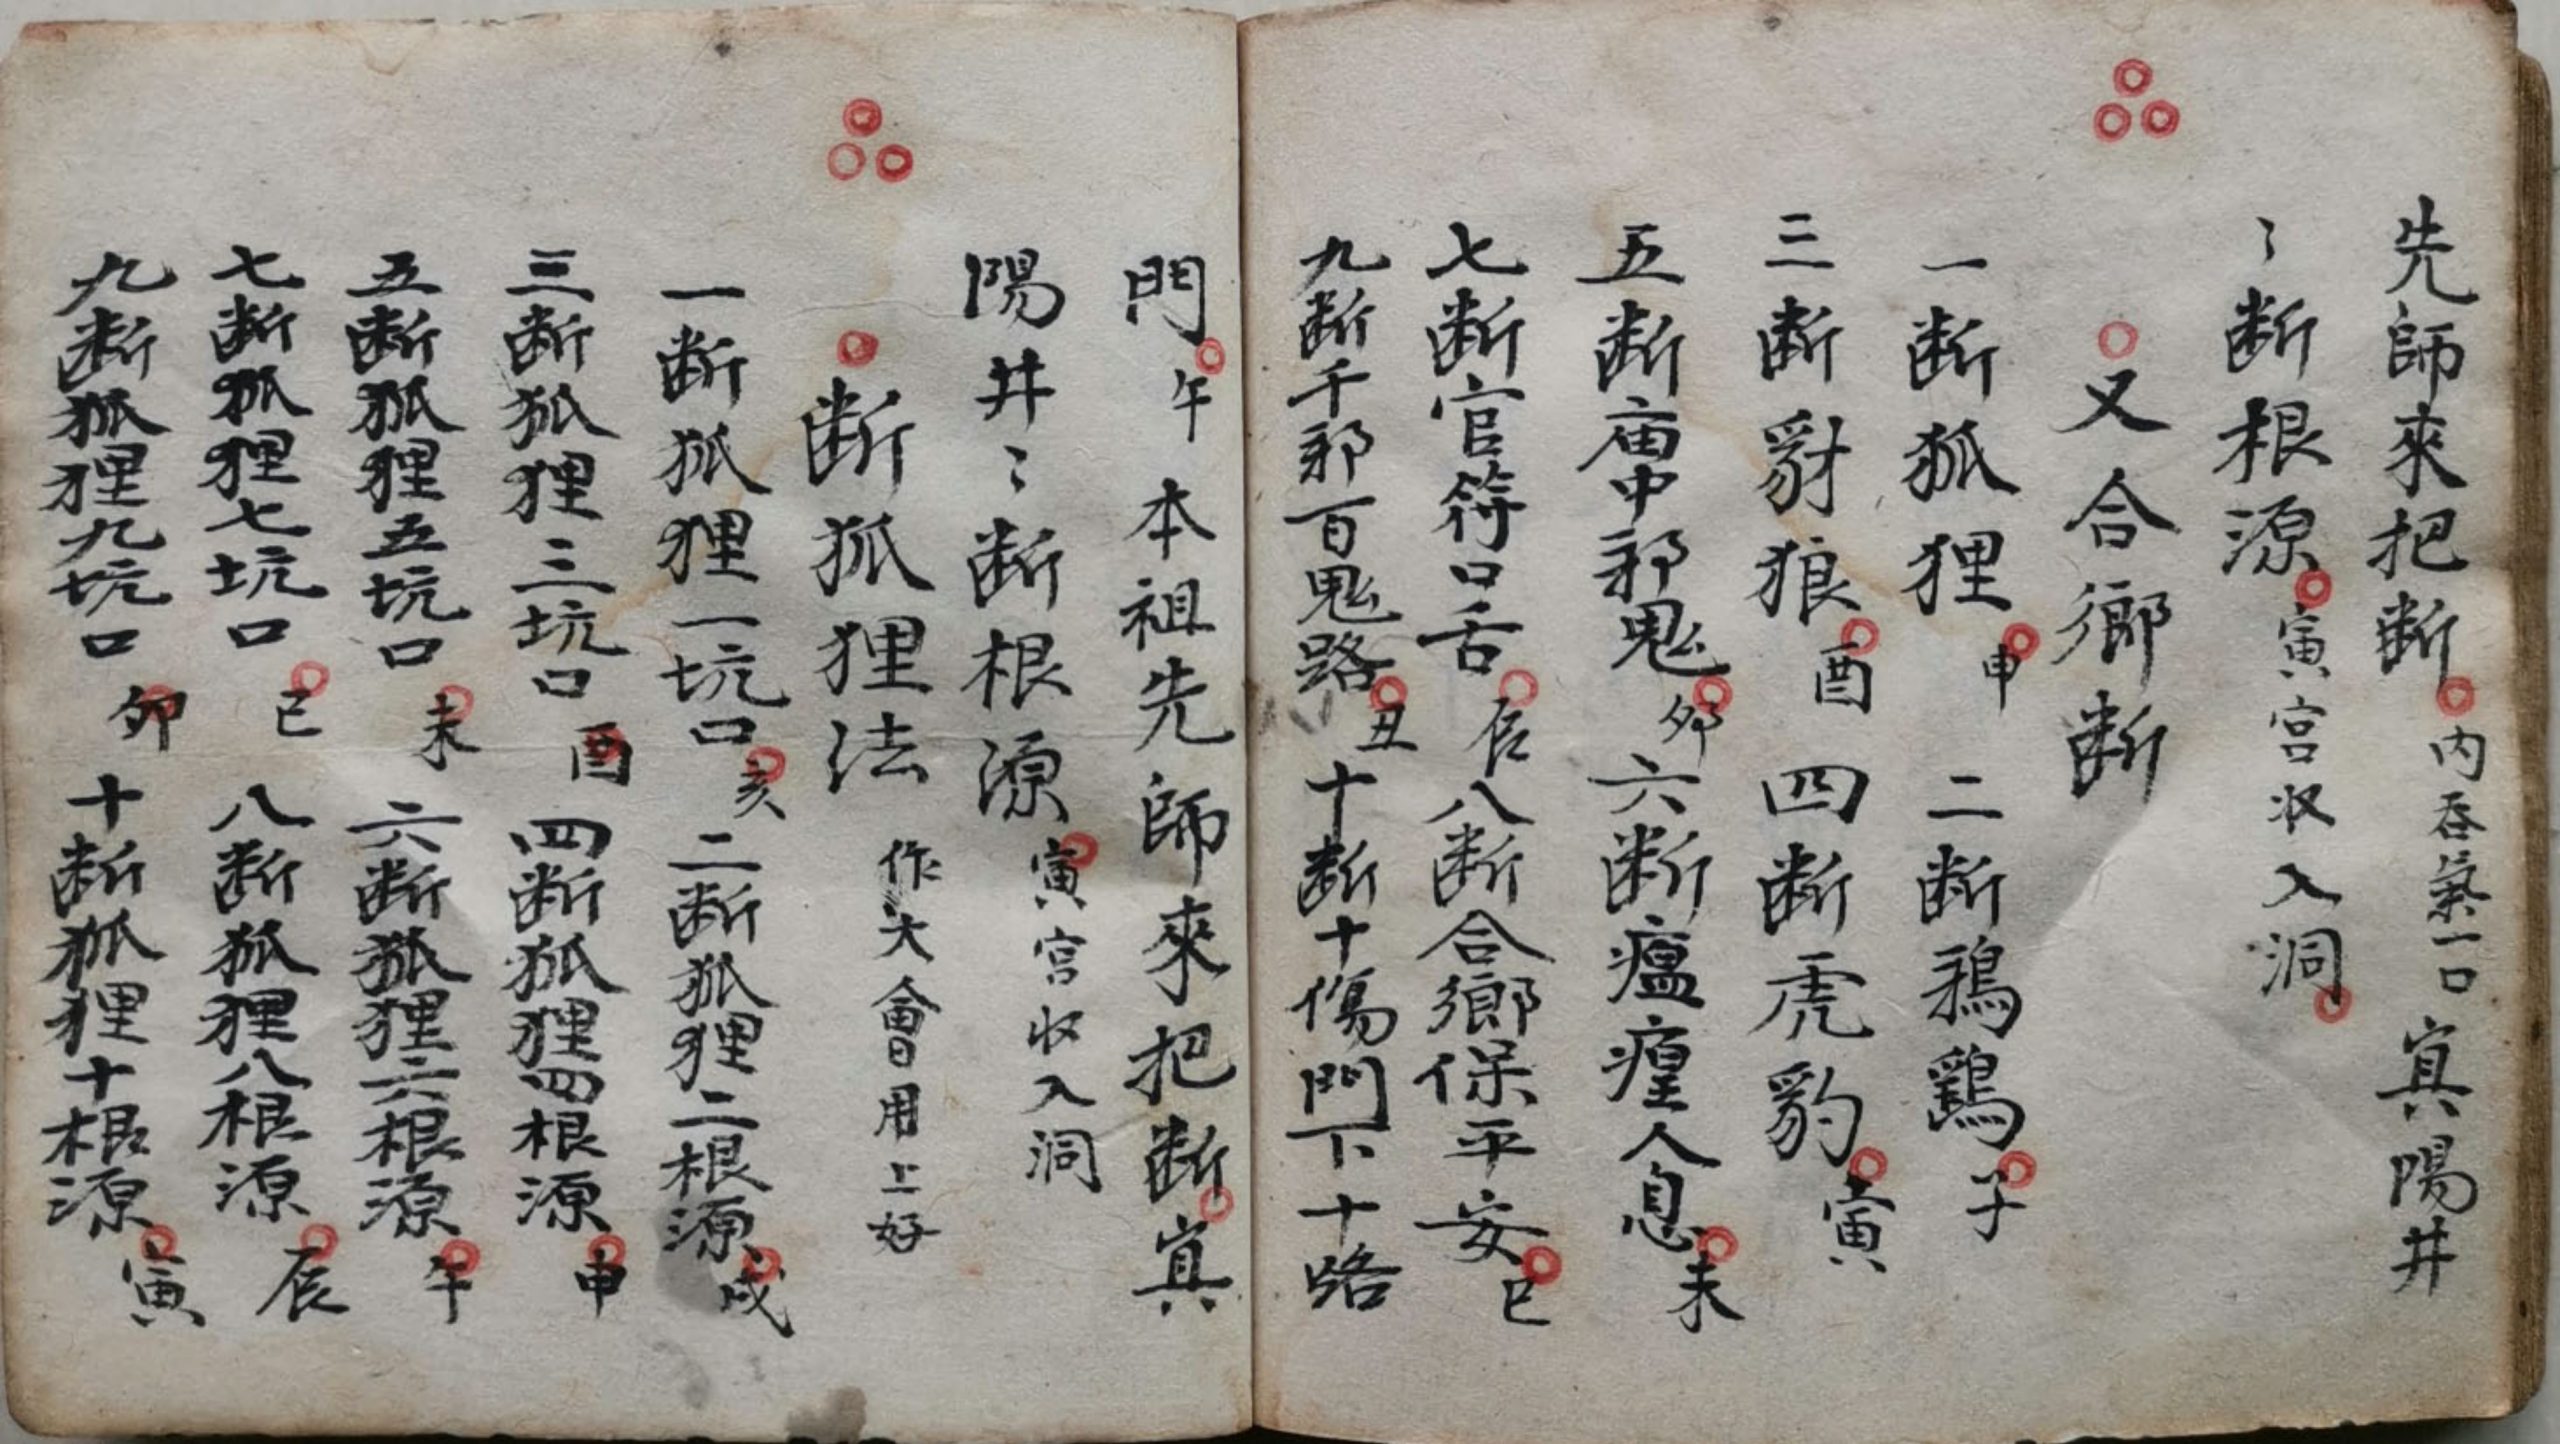 先師來把断 内吞氣一口 真陽井
〻断根源 寅宫收入洞
又合鄉断
一断狐狸 申 二断鴉鷄 子
三断豺狼 酉 四断虎豹 寅
五断庙中邪鬼 卯 六断瘟㾮人息 未
七断官符口舌 辰 八断合鄉保平安 巳
九断千邪百鬼路 丑 十断十傷門下十路
門 午 本祖先師來把断真
陽井〻断根源 寅宫收入洞
断狐狸法 作大會日用上好
一断狐狸一坑口 亥 二断狐狸二根源 戍
三断狐狸三坑口 酉 四断狐狸四根源 申
五断狐狸五坑口 未 六断狐狸六根源 午
七断狐狸七坑口 巳 八断狐狸八根源 辰
九断狐狸九坑口 卯 十断狐狸十根源 寅